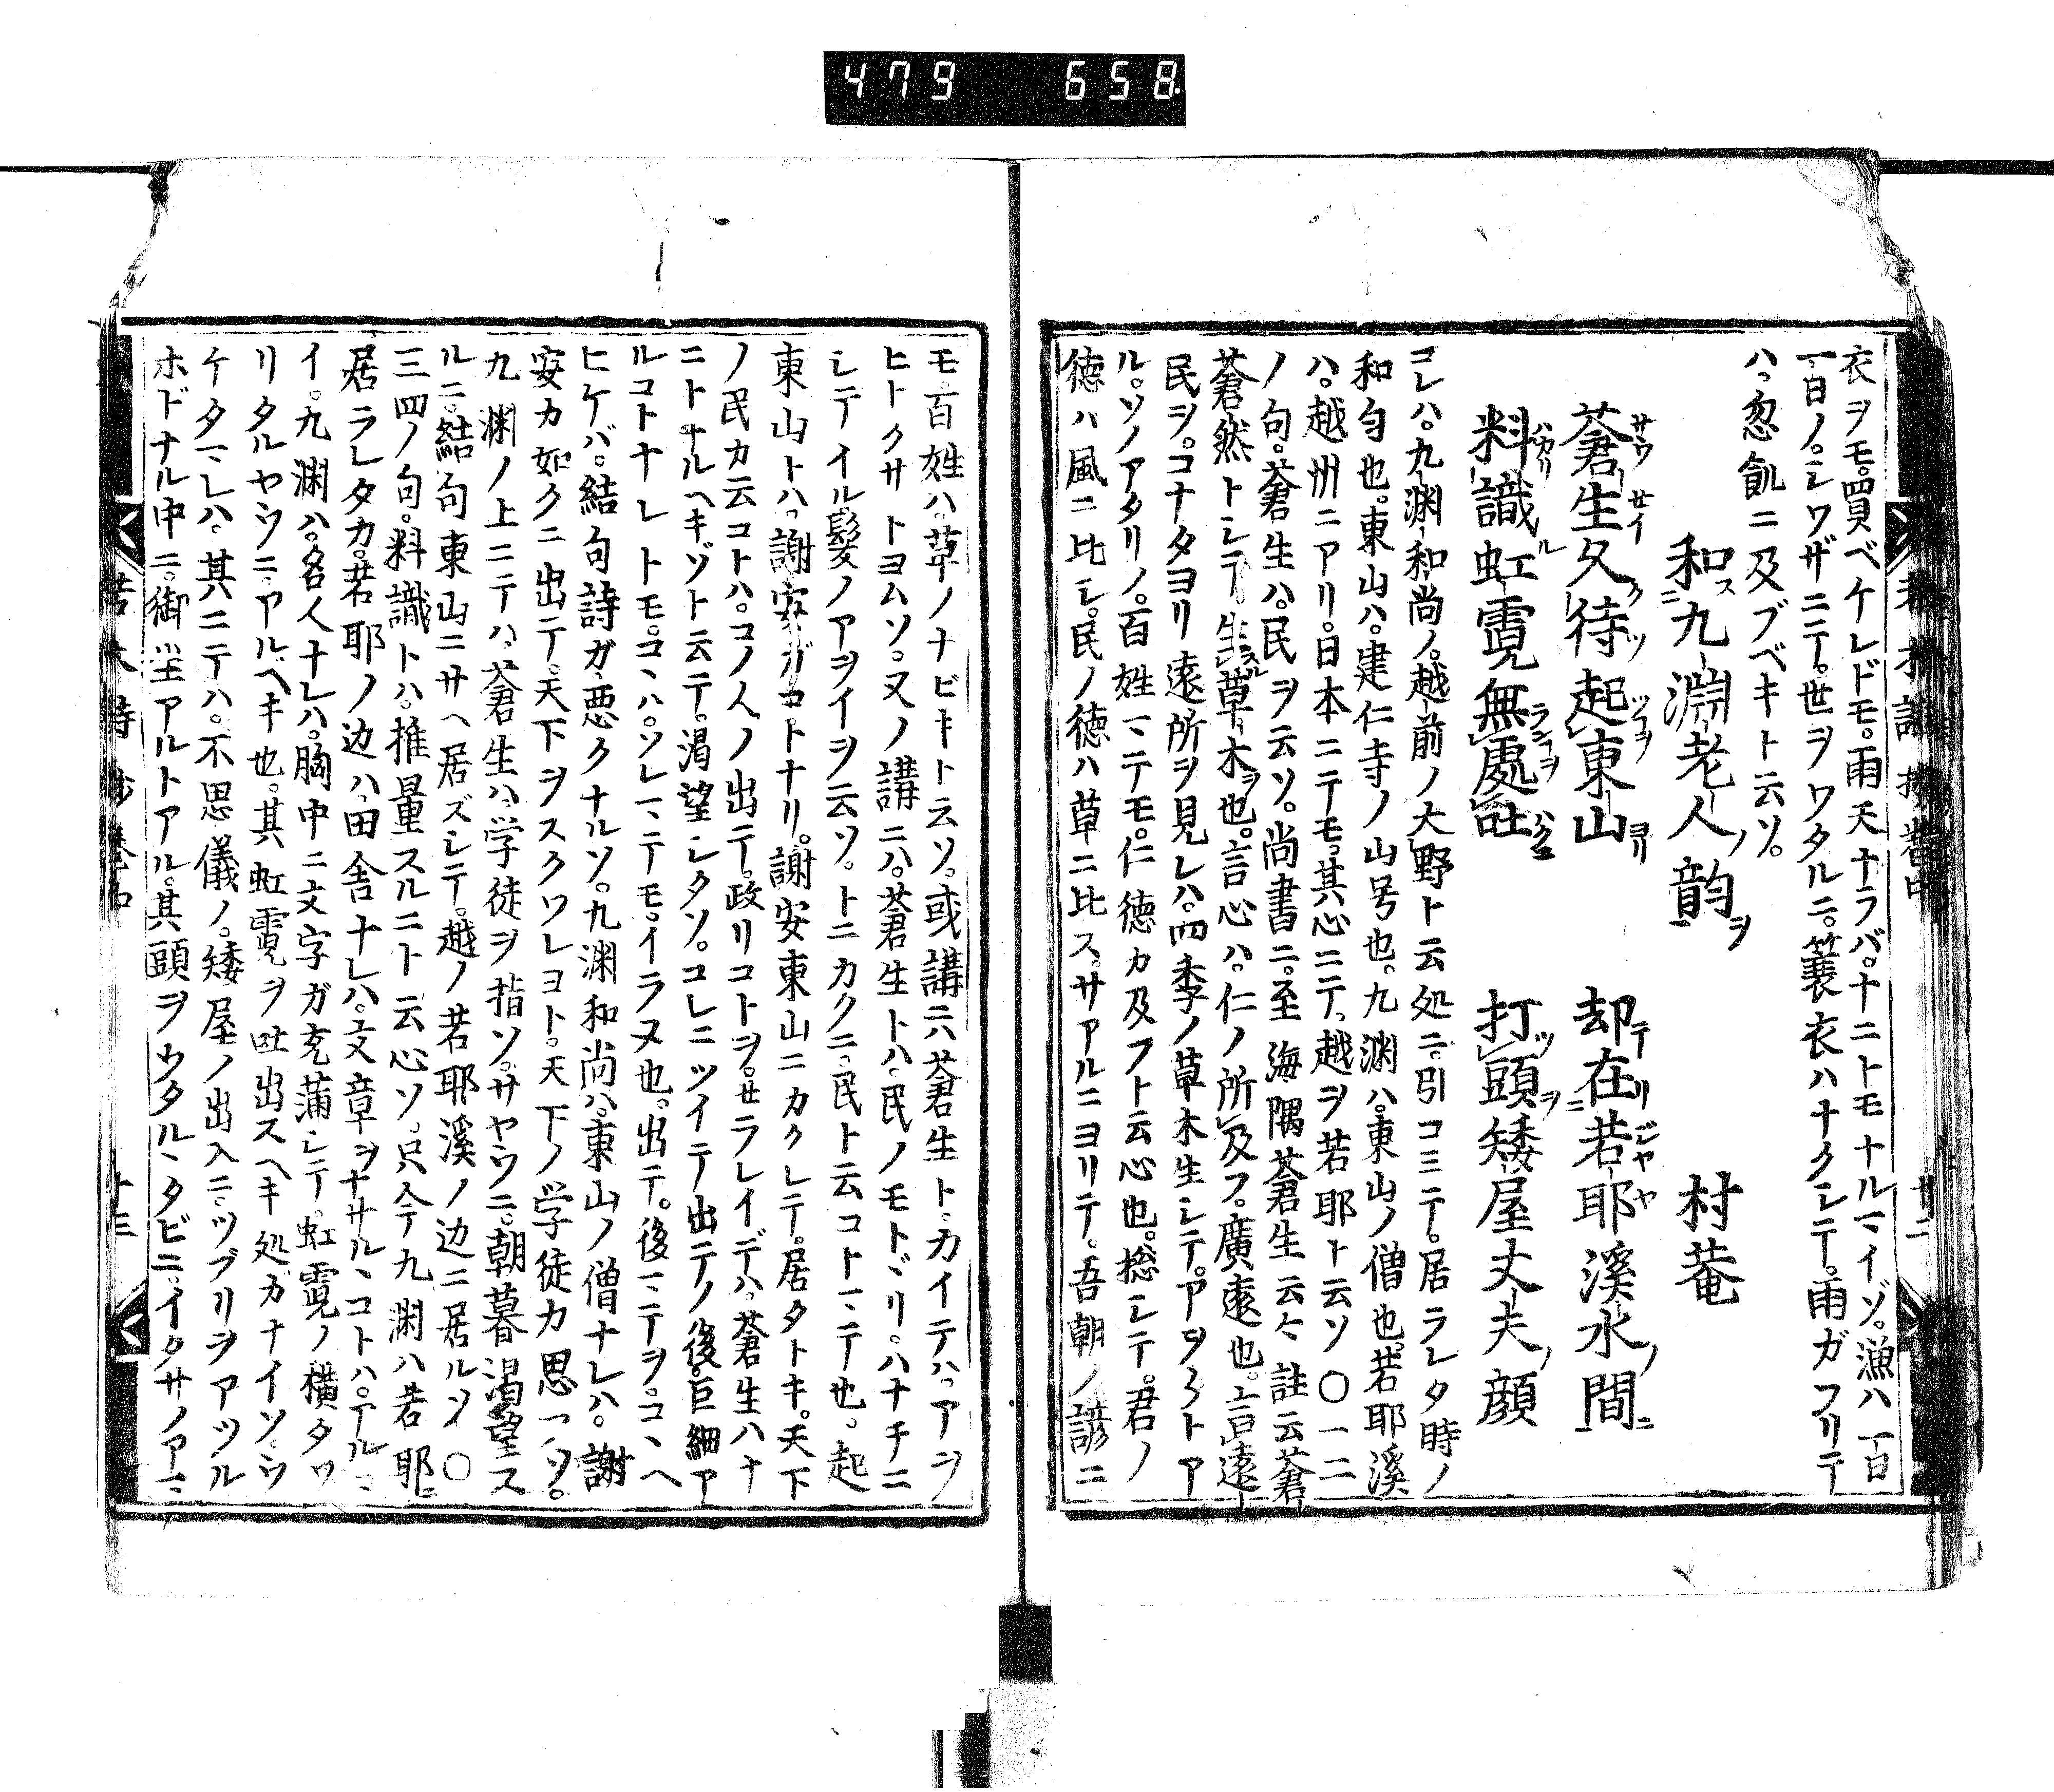 479 658
衣ヲモ。買ベケレドモ。雨天ナラバ。ナニトモナルマイゾ。漁ハ一日
一日ノ。シワザニテ。世ヲワタルニ。簑衣ハナクシテ。雨ガフリテ
ハ。忽飢ニ及ブベキト云ソ。
和ス九淵老人ノ韵ヲ 村菴
蒼生久待起東山 却在若耶溪水間
料識虹霓無處吐 打頭矮屋丈夫顔
コレハ。九淵和尚ノ。越前ノ大野ト云処ニ。引コミテ。居ラレタ時ノ
和匀也。東山ハ。建仁寺ノ山号也。九渊ハ。東山ノ僧也。若耶溪
ハ。越州ニアリ。日本ニテモ。其心ニテ。越ヲ若耶ト云ソ○一二
ノ句。蒼生ハ。民ヲ云ソ。尚書ニ。至海隅蒼生云々註云蒼
蒼然トシテ。生草木也。言心ハ。仁ノ所及フ。廣遠也。言遠
民ヲ。コナタヨリ遠所ヲ見レハ。四季ノ草木生シテ。アヲ〱トア
ル。ソノアタリノ。百姓マテモ。仁徳カ及フト云心也。捴シテ。君ノ
徳ハ風ニ比シ。民ノ徳ハ草ニ比ス。サアルニヨリテ。吾朝ノ諺ニ
モ百姓ハ。草ノナビキト云ソ。或講ニハ蒼生ト。カイテハ。アヲ
ヒトクサトヨムソ。又ノ講ニハ。蒼生トハ。民ノモトヾリ。ハナチニ
シテイル。髪ノアヲイヲ云ソ。トニカクニ。民ト云コトマテ也。起
東山トハ。謝安ガコトナリ。謝安東山ニカクレテ。居タトキ。天下
ノ民カ云コトハ。コノ人ノ出テ。政リコトヲ。せラレイデハ。蒼生ハナ
ニトナルヘキゾト云テ。渇望シタソ。コレニツイテ出テノ後。巨細ア
ルコトナレトモ。コヽハ。ソレマテモ。イラヌ也。出テ。後マテヲ。コヽヘ
ヒケバ。結句詩ガ。悪クナルソ。九渊和尚ハ。東山ノ僧ナレハ。謝
安カ如クニ出テ。天下ヲスクワレヨト。天下ノ学徒カ思フソ。
九渊ノ上ニテハ。蒼生ハ。学徒ヲ指ソ。サヤウニ。朝暮渇望ス
ルニ。結句東山ニサヘ居ズシテ。越ノ若耶溪ノ边ニ居ルソ○
三四ノ句。料識トハ。推量スルニト云心ソ。只今九渊ハ若耶ニ
居ラレタカ。若耶ノ边ハ。田舎ナレハ。文章ヲナサルヽコトハ。アルマ
イ。九渊ハ。名人ナレハ。胸中ニ文字ガ充蒲シテ。虹霓ノ横タワ
リタルヤウニ。アルベキ也。其虹霓ヲ吐出スヘキ処ガナイソ。ウ
ケタマレハ。其ニテハ。不思儀ノ。矮屋ノ出入ニ。ツブリヲアツル
ホドナル中ニ。御坐アルトアル。其頭ヲウタルヽタビニ。イクサノアマ